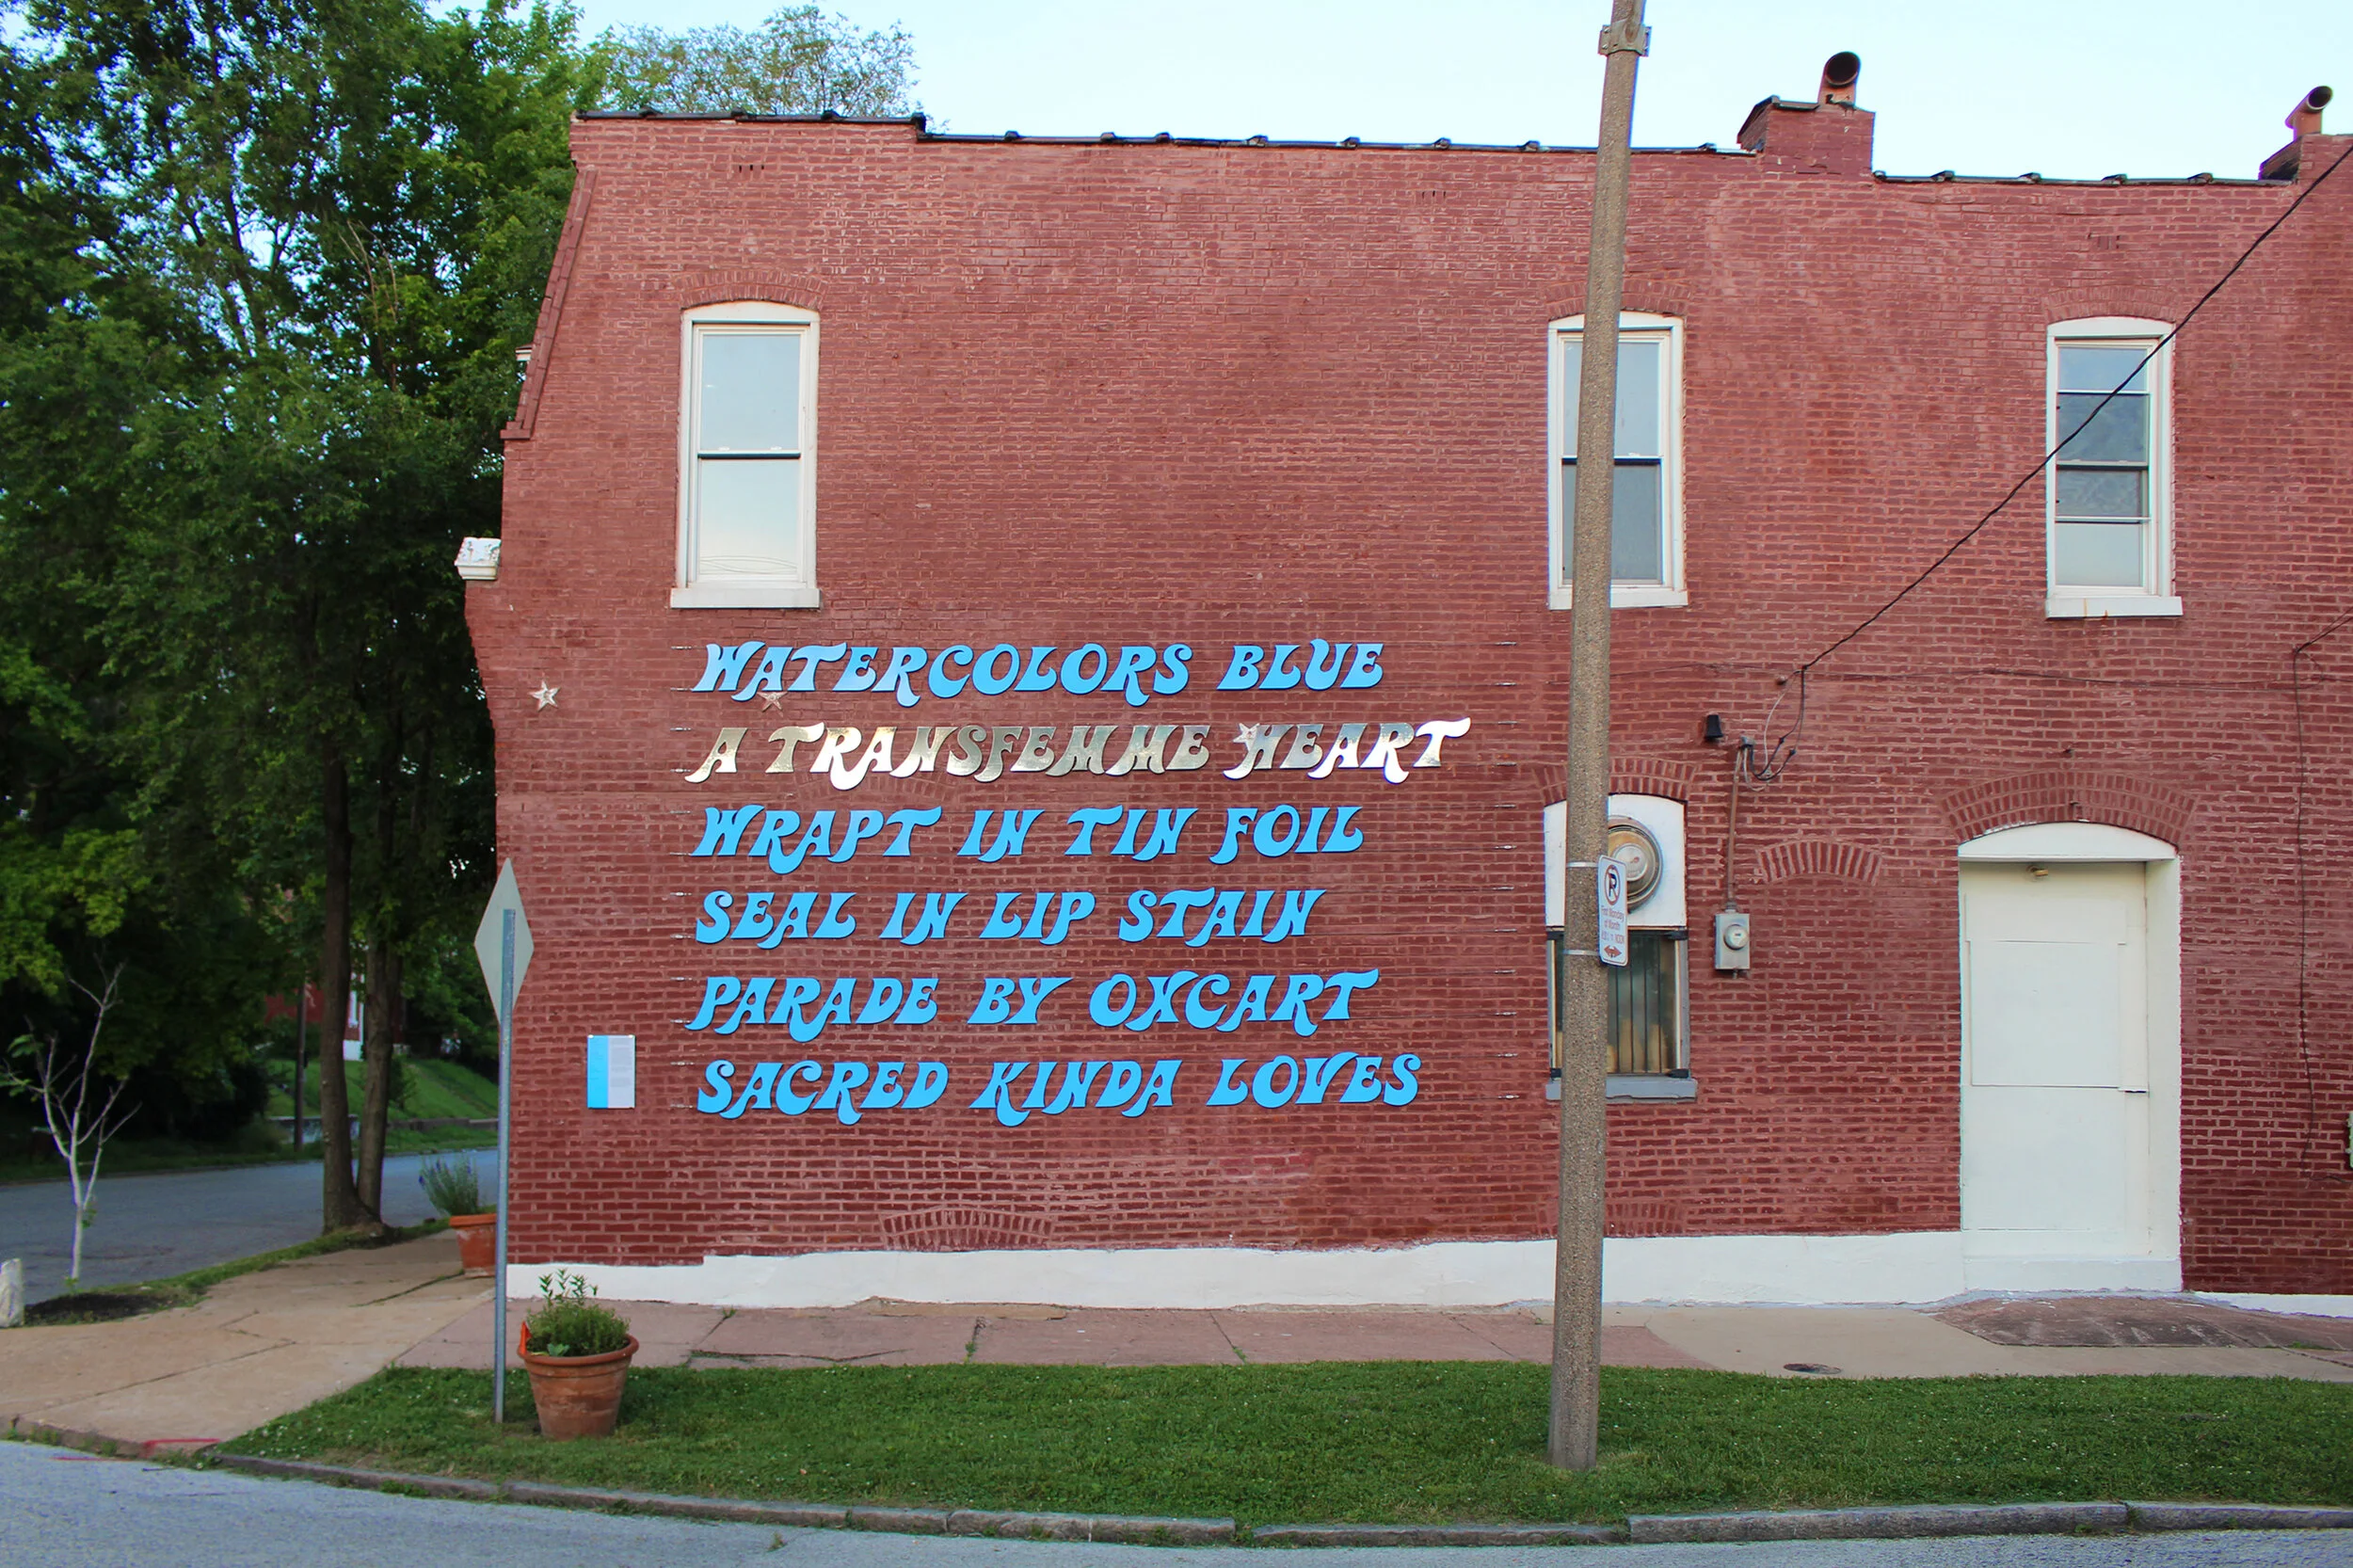 WATERCOLORS BLUE
A TRANSFEMME HEART
WRAPT IN TIN FOIL
SEAL IN LIP STAIN
PARADE BY OXCART
SACRED KINDA LOVES